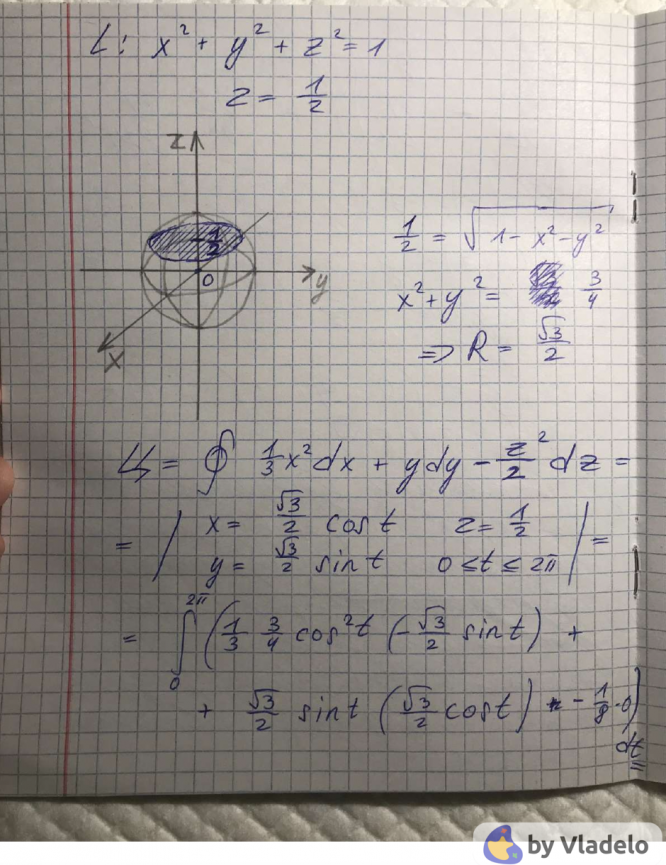 L: x² + y² + z² = 1
z = 1/2
z
1/2
0
y
x
1/2 = √(1 - x² - y²)
x² + y² = 3/4
=> R = √3/2
Ц = ∮ 1/3 x² dx + y dy - z²/2 dz =
= | x = √3/2 cos t z = 1/2
y = √3/2 sin t 0 ≤ t ≤ 2π | =
= ∫₀^2π (1/3 3/4 cos² t (-√3/2 sin t) +
+ √3/2 sin t (√3/2 cos t) - 1/8 · 0)
dt =
by Vladelo